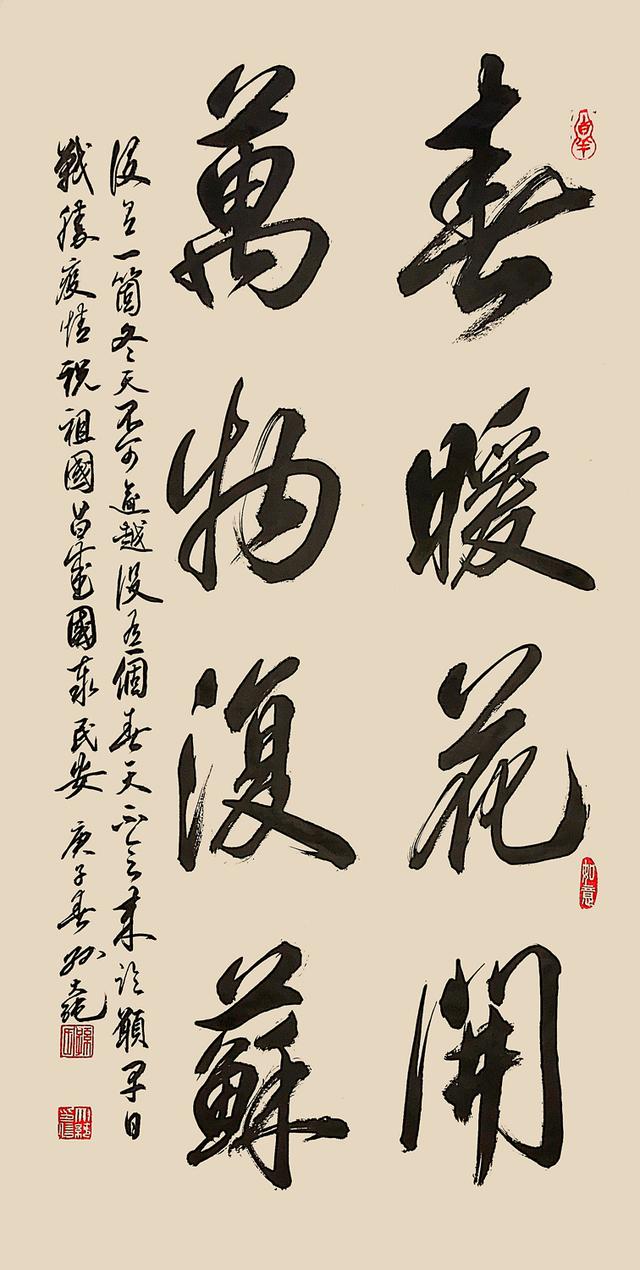 春暖花開
萬物復蘇
沒有一箇冬天不可逾越沒有一個春天不會來臨願早日
戰勝疫情祝祖國昌盛國泰民安 庚子春 孙
如意